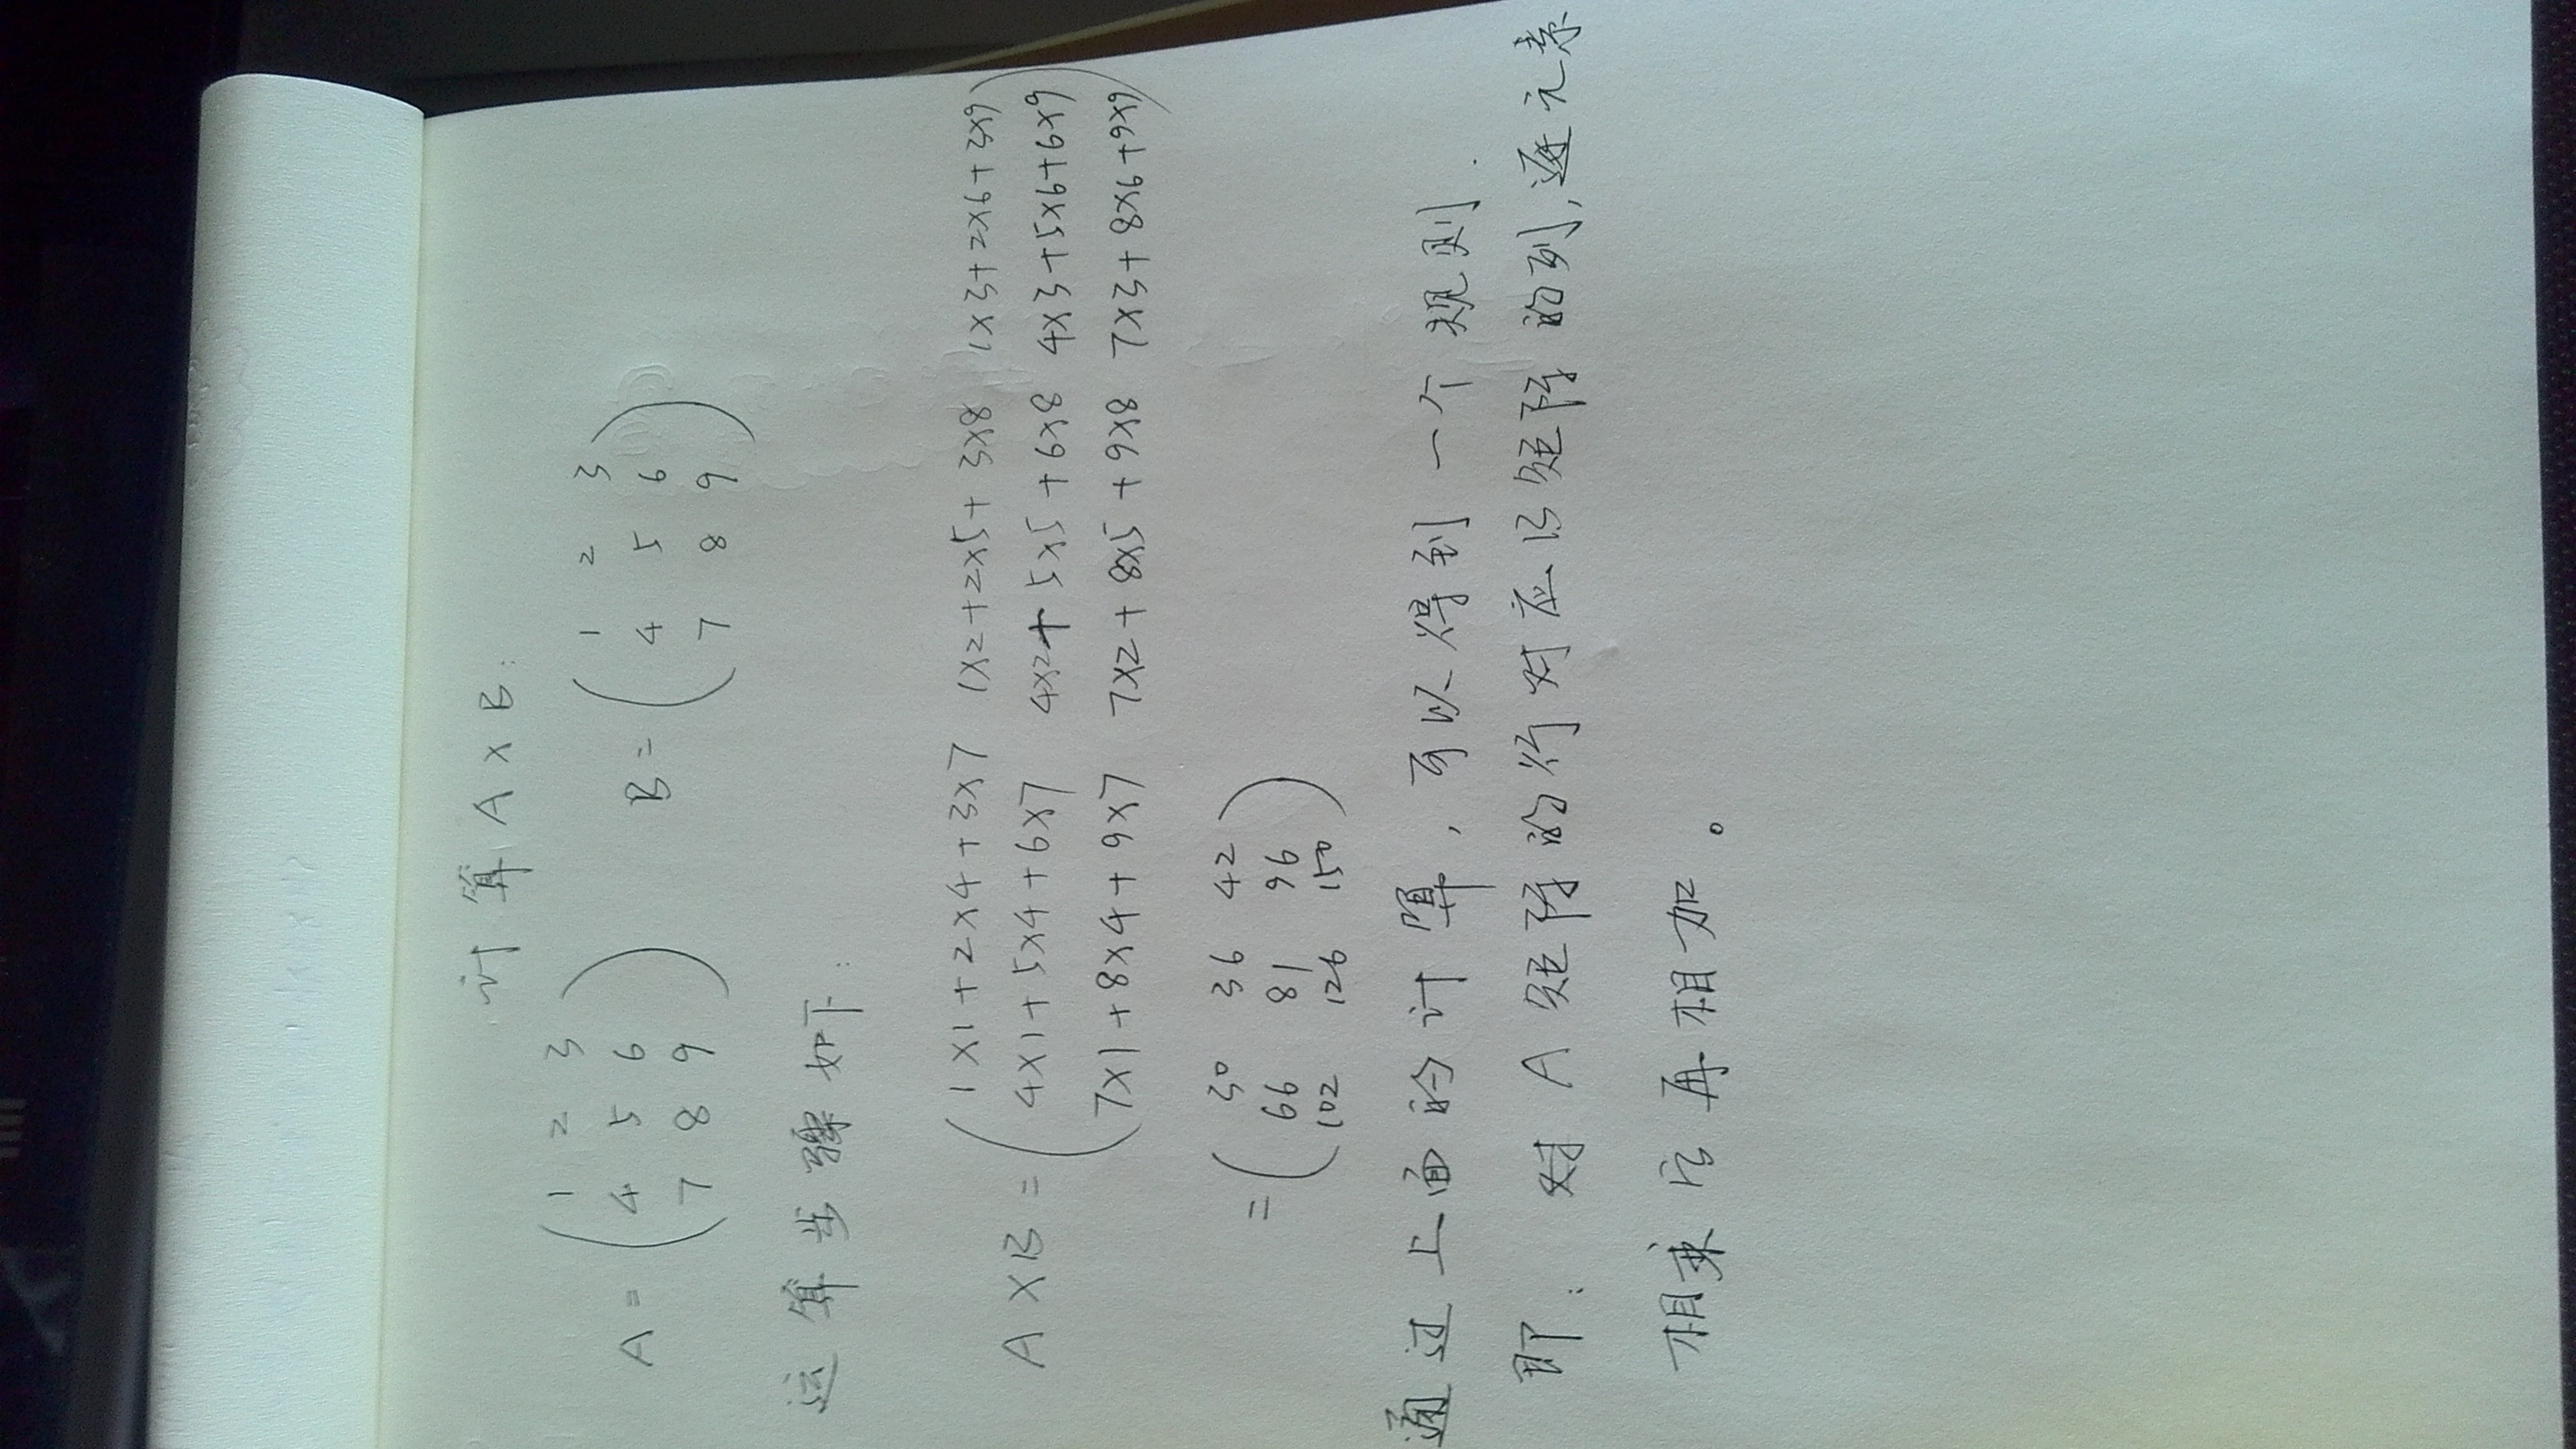 计算 A×B:
A = ( 1 2 3    B = ( 1 2 3
4 5 6    4 5 6
7 8 9 )    7 8 9 )
运算步骤如下:
( 1×1+2×4+3×7 1×2+2×5+3×8 1×3+2×6+3×9 )
A×B = 4×1+5×4+6×7 4×2+5×5+6×8 4×3+5×6+6×9
7×1+8×4+9×7 7×2+8×5+9×8 7×3+8×6+9×9
( 30 36 42 )
= 66 81 96
102 126 150
通过上面的计算,可以得到一个规则.
即: 对A矩阵的行对应B矩阵的列,逐元素
相乘后再相加。